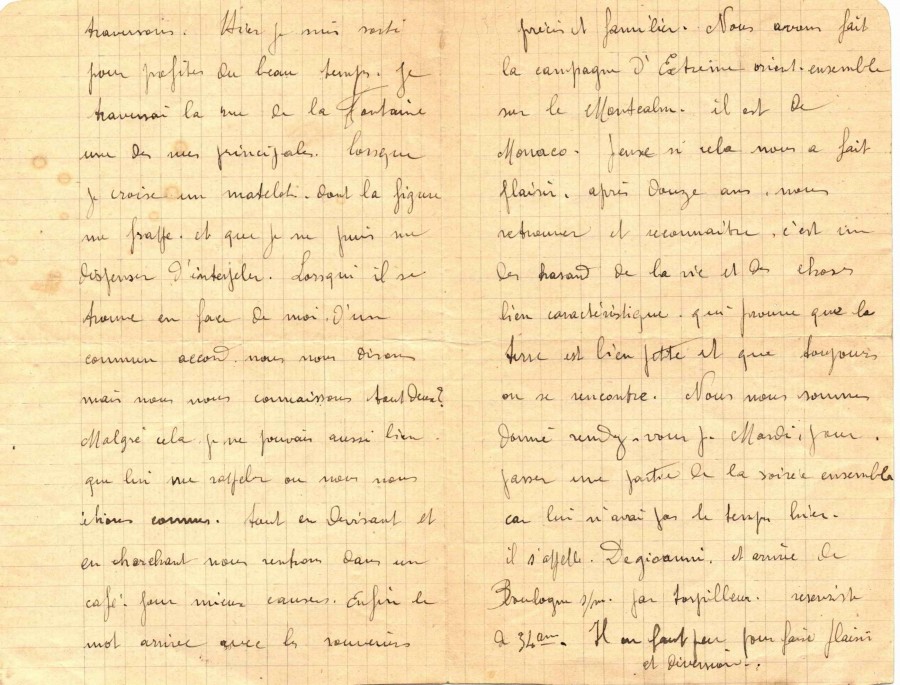 traversons. Hier je suis sorti
pour profiter du beau temps. Je
traversai la rue de la Fontaine
une des rues principales. lorsque
je croise un matelot. dont la figure
me frappe. et que je ne puis me
dispenser d'interpeler. Lorsqui il se
trouve en face de moi. d'un
commun accord. nous nous disons
mais nous nous connaissons tout deux?
Malgré cela je ne pouvais aussi bien.
que lui me rappeler ou nous nous
étions connus. tout en devisant et
en cherchant nous rentrons dans un
café. pour mieux causer. Enfin le
mot arrive avec les souvenirs
précis et familier. Nous avons fait
la campagne d'Extreme orient. ensemble
sur le Montcalm. il est de
Monaco. si cela nous a fait
plaisir. après douze ans. nous
retrouver et reconnaitre. c'est un
des hasard de la vie et des choses
bien caractéristique. qui prouve que la
terre est bien petite et que toujours
on se rencontre. Nous nous sommes
donné rendez-vous p. Mardi, pour.
passer une partie de la soirée ensemble
car lui n'avai pas le temps hier.
il s'appelle. Degioanni. et arrive de
Boulogne s/m. par torpilleur. reserviste
a 34 ans. Il en faut peu pour faire plaisir
et diversion..